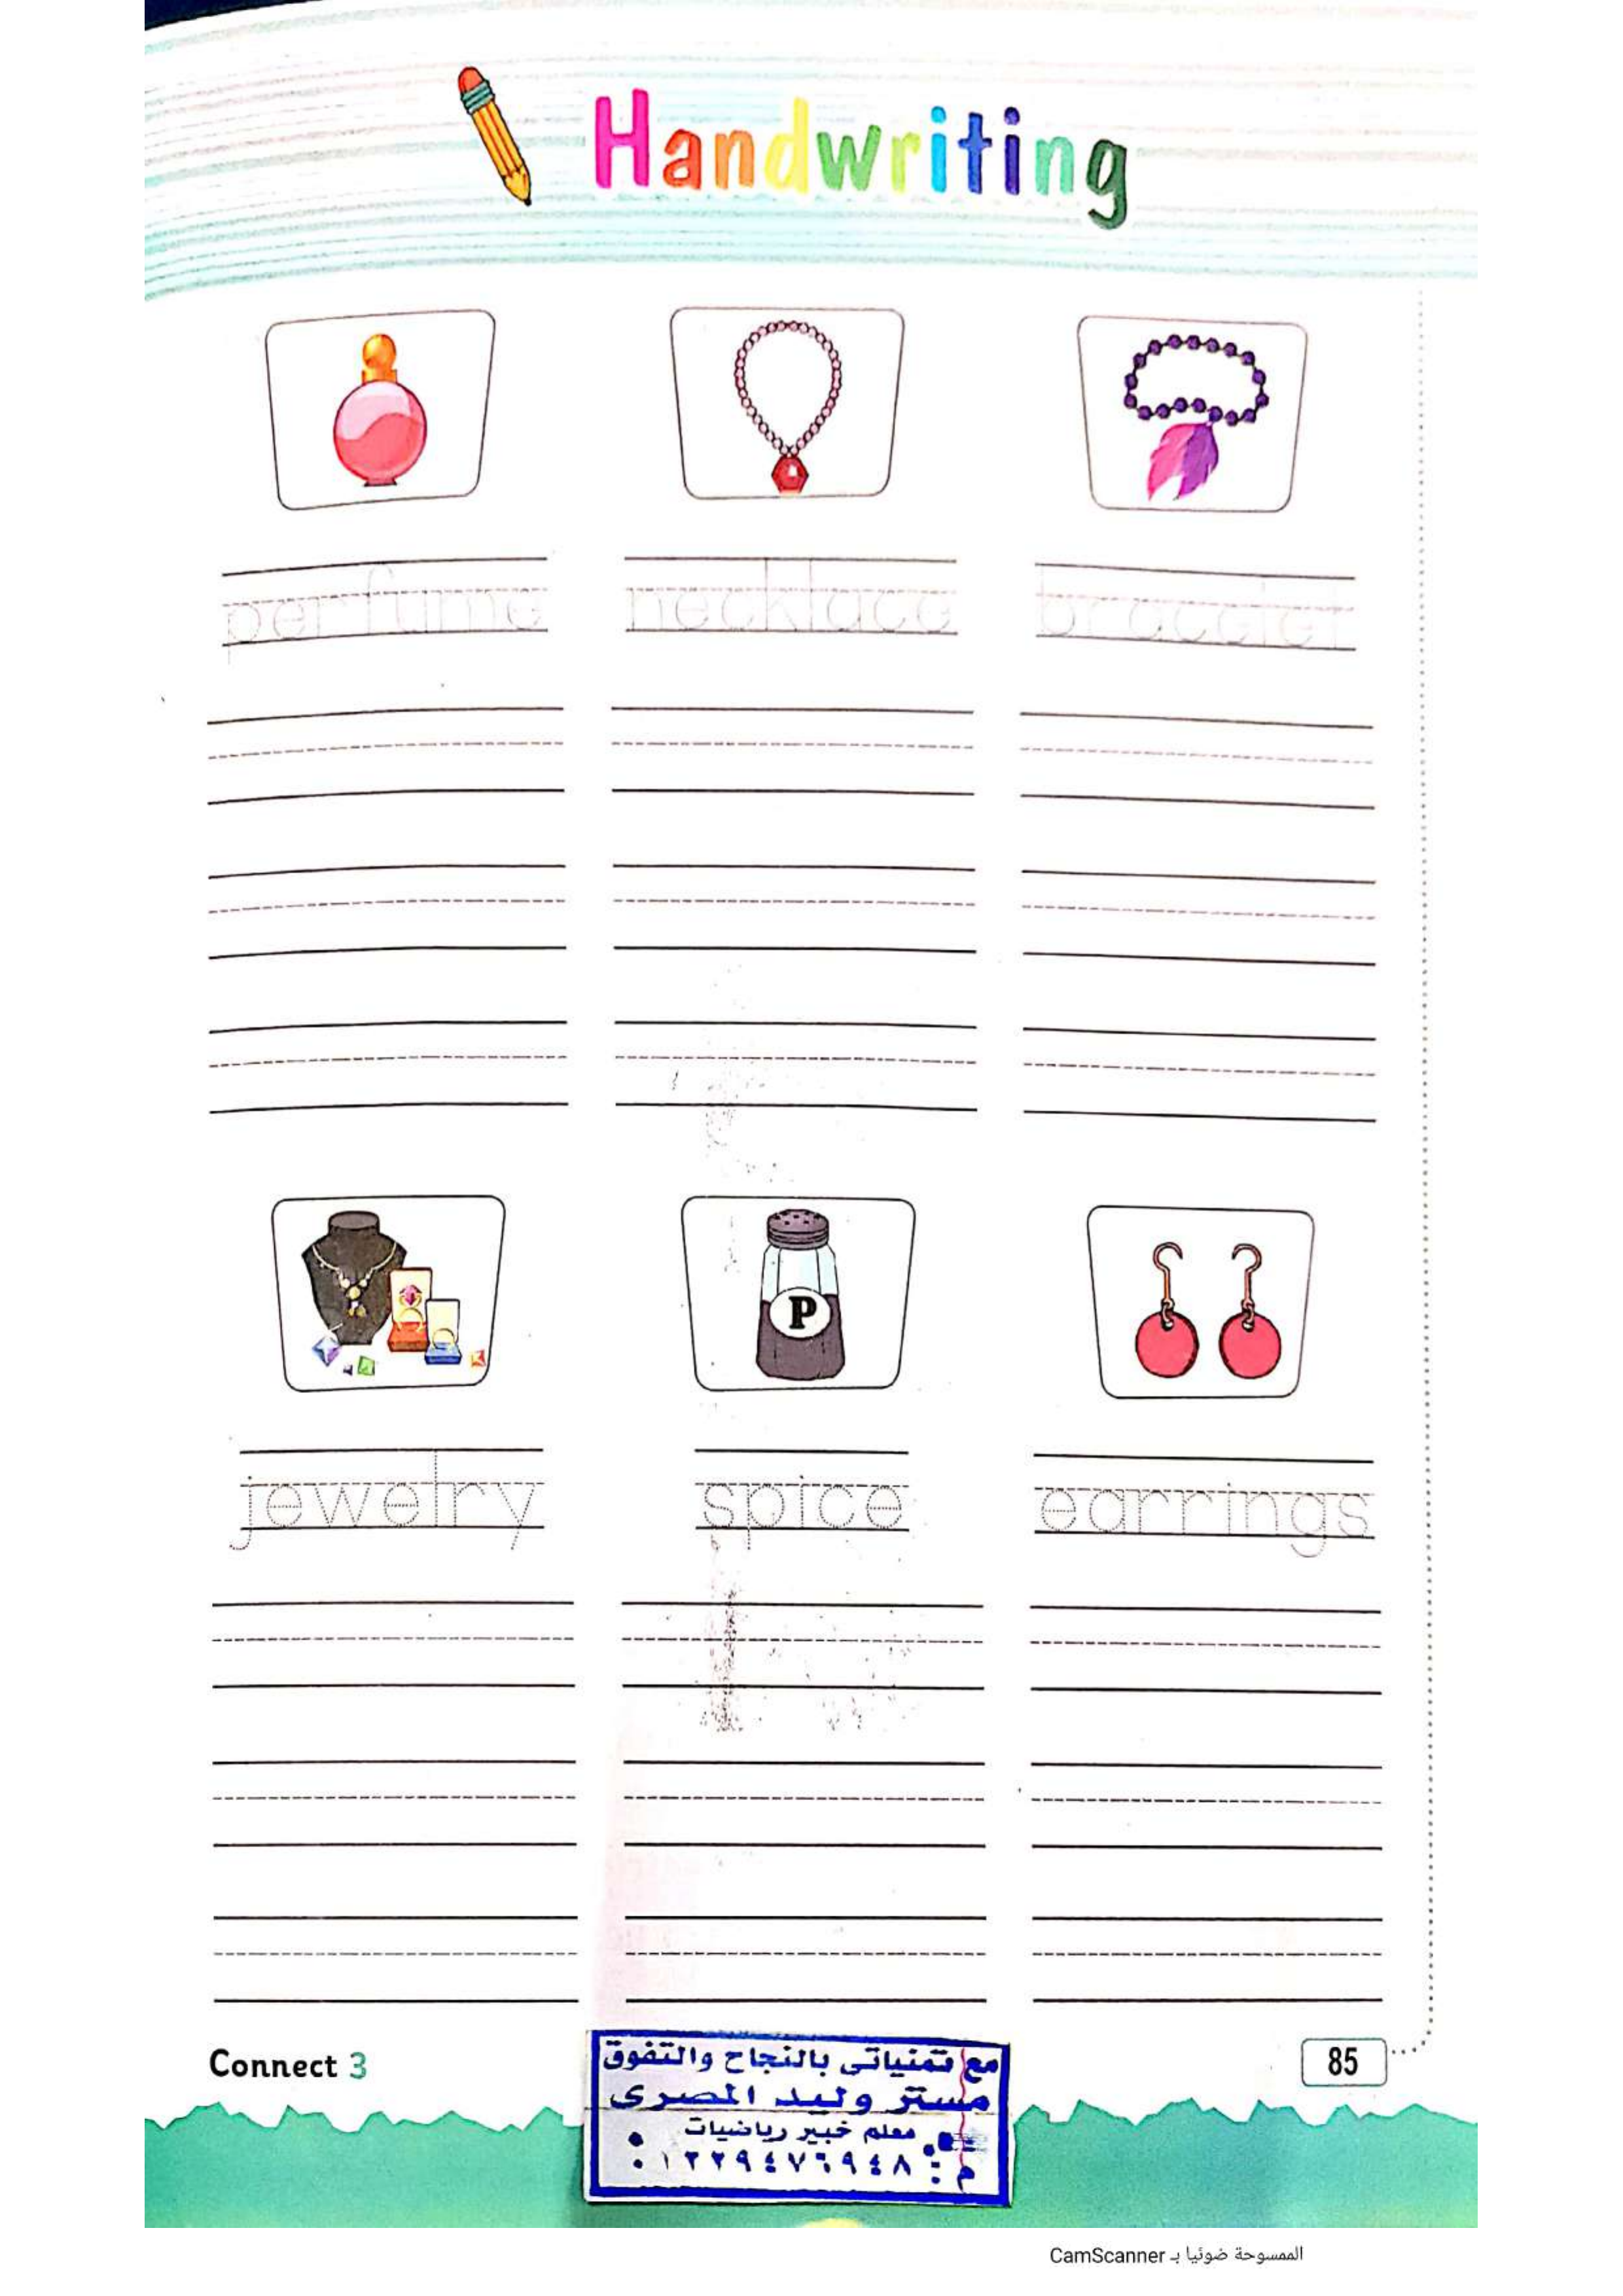 Handwriting
perfume necklace bracelet
P
jewelry spice earrings
Connect 3
مع تمنياتى بالنجاح والتفوق
مستر وليد المصرى
معلم خبير رياضيات
م : ٠١٢٢٩٤٧٦٩٤٨
85
الممسوحة ضوئيا بـ CamScanner